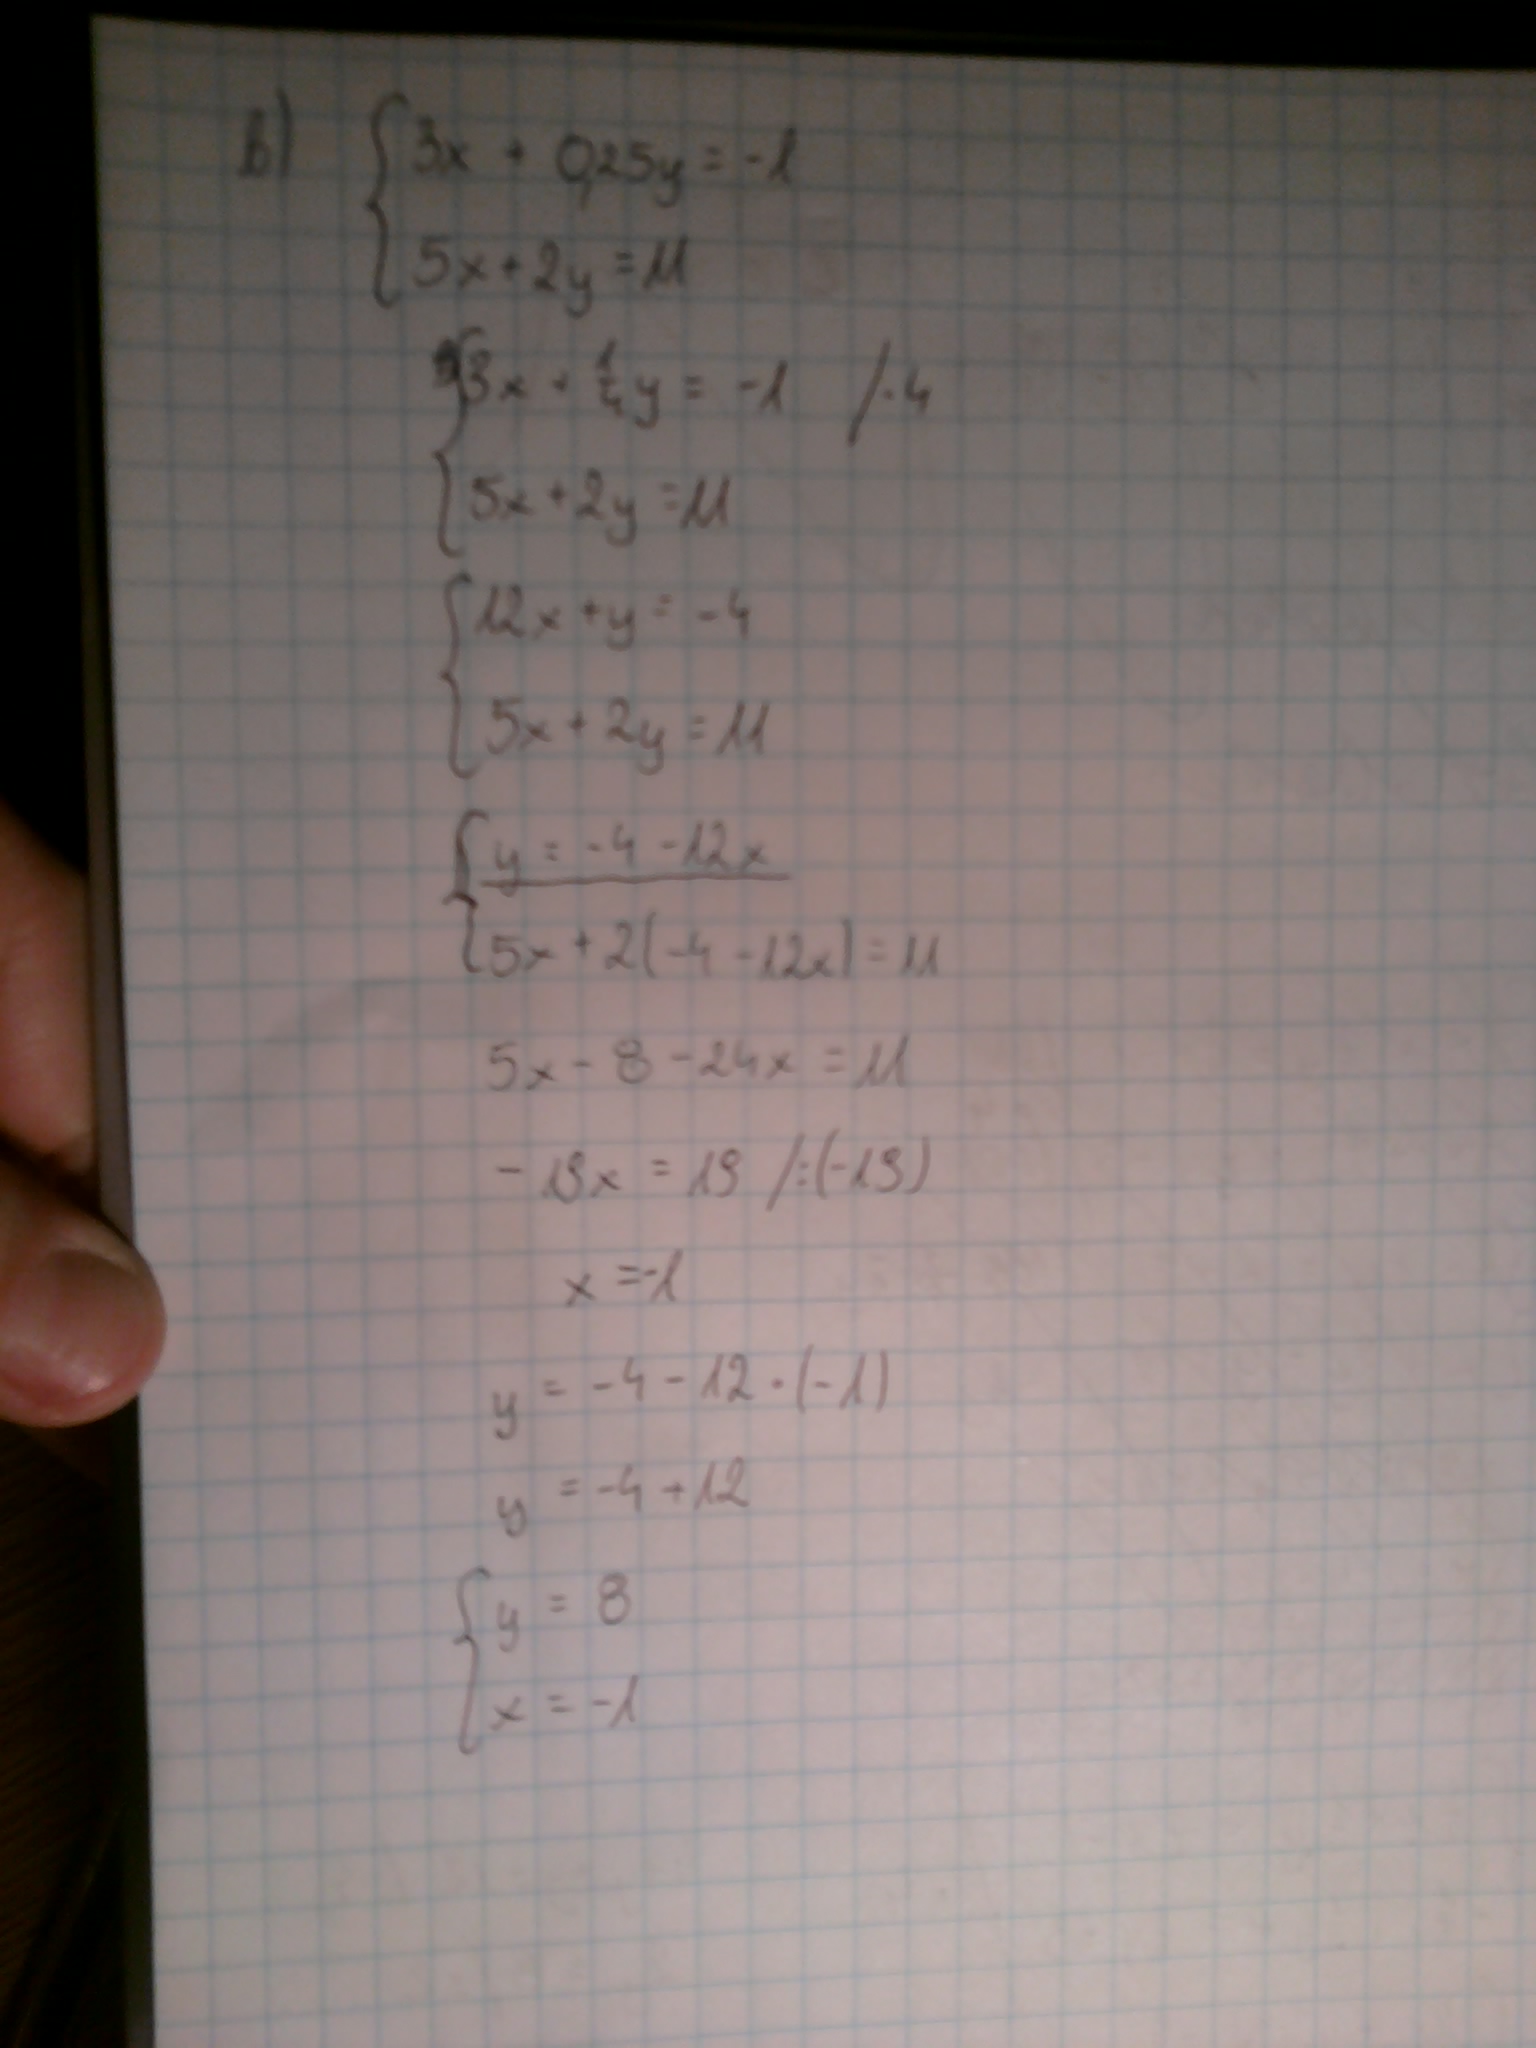 b) { 3x + 0,25y = -1
5x + 2y = 11
{ 3x + 1/4 y = -1 /·4
5x + 2y = 11
{ 12x + y = -4
5x + 2y = 11
{ y = -4 - 12x
5x + 2(-4 - 12x) = 11
5x - 8 - 24x = 11
-19x = 19 /:(-19)
x = -1
y = -4 - 12 · (-1)
y = -4 + 12
{ y = 8
x = -1